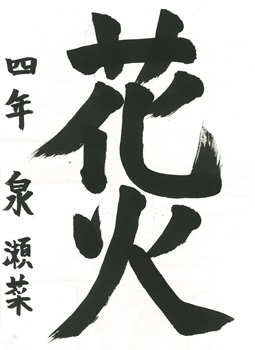 花火
四年 泉 瀬菜